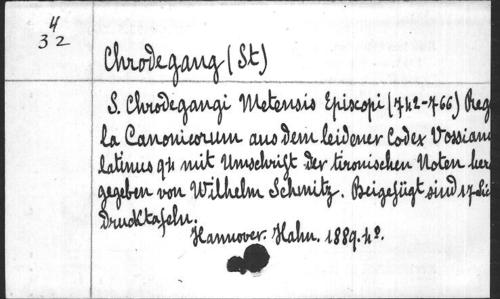 4
32
Chrodegang (St)
S. Chrodegangi Metensis Episcopi (742-766) Reg
la Canonicorum aus dem leidener Codex Vossian
latinus 94 mit Umschrift der tironischen Noten her
gegeben von Wilhelm Schmitz. Beigefügt sind 17 Lic
drucktafeln.
Hannover. Hahn. 1889. 4º.